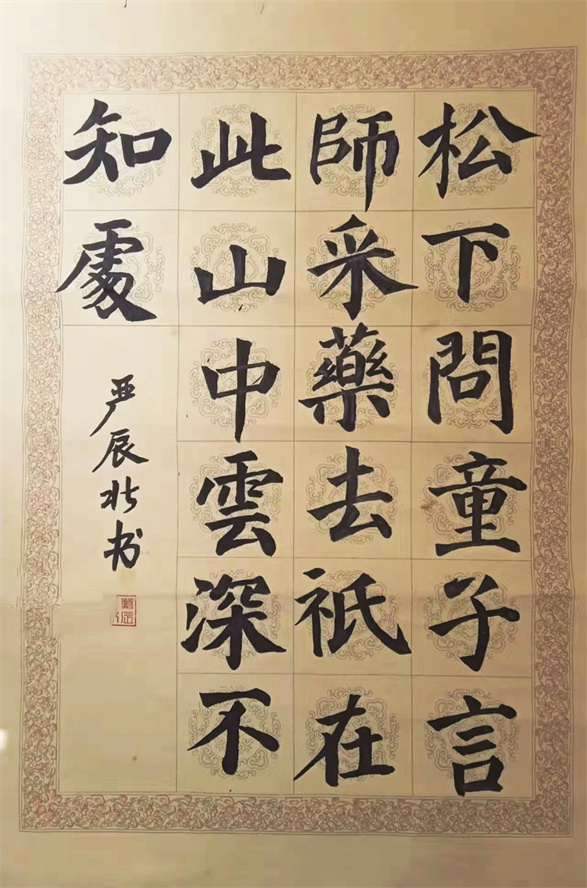 松下問童子言
師采藥去祇在
此山中雲深不
知處
严辰北书